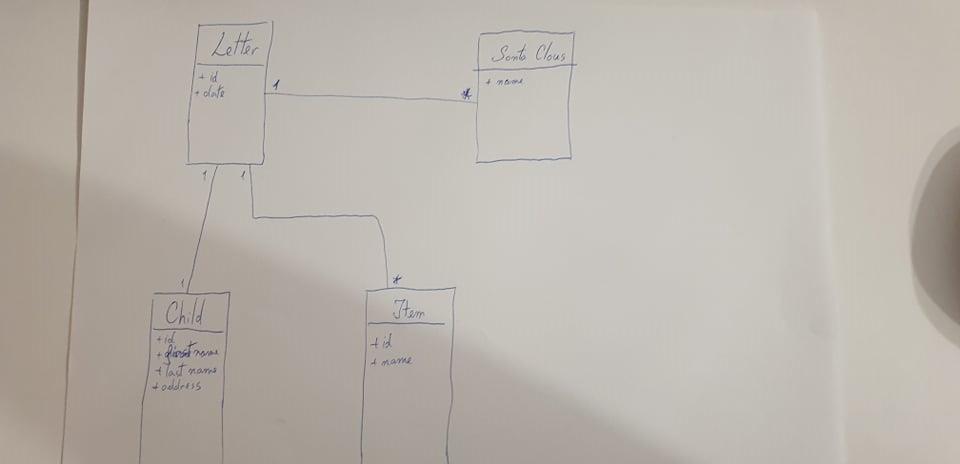 Letter
+ id
+ date
1
*
Santa Claus
+ name
1
1
1
*
Child
+ id
+ first name
+ last name
+ address
Item
+ id
+ name